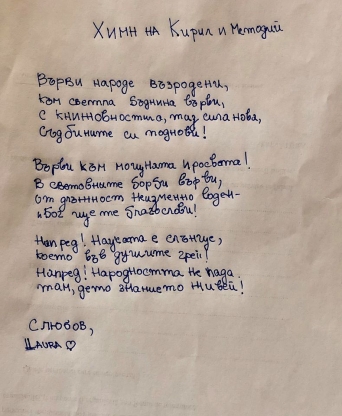 Химн на Кирил и Методий
Върви народе възродени,
към светла бъднина върви,
с книжовността, таз сила нова,
съдбините си поднови!
Върви към мощната Просвета!
В световните борби върви,
от длъжност неизменно воден-
и Бог ще те благослови!
Напред! Науката е слънце,
което във душите грей!
Напред! Народността не пада
там, дето знанието живей!
С любов,
Laura ♡